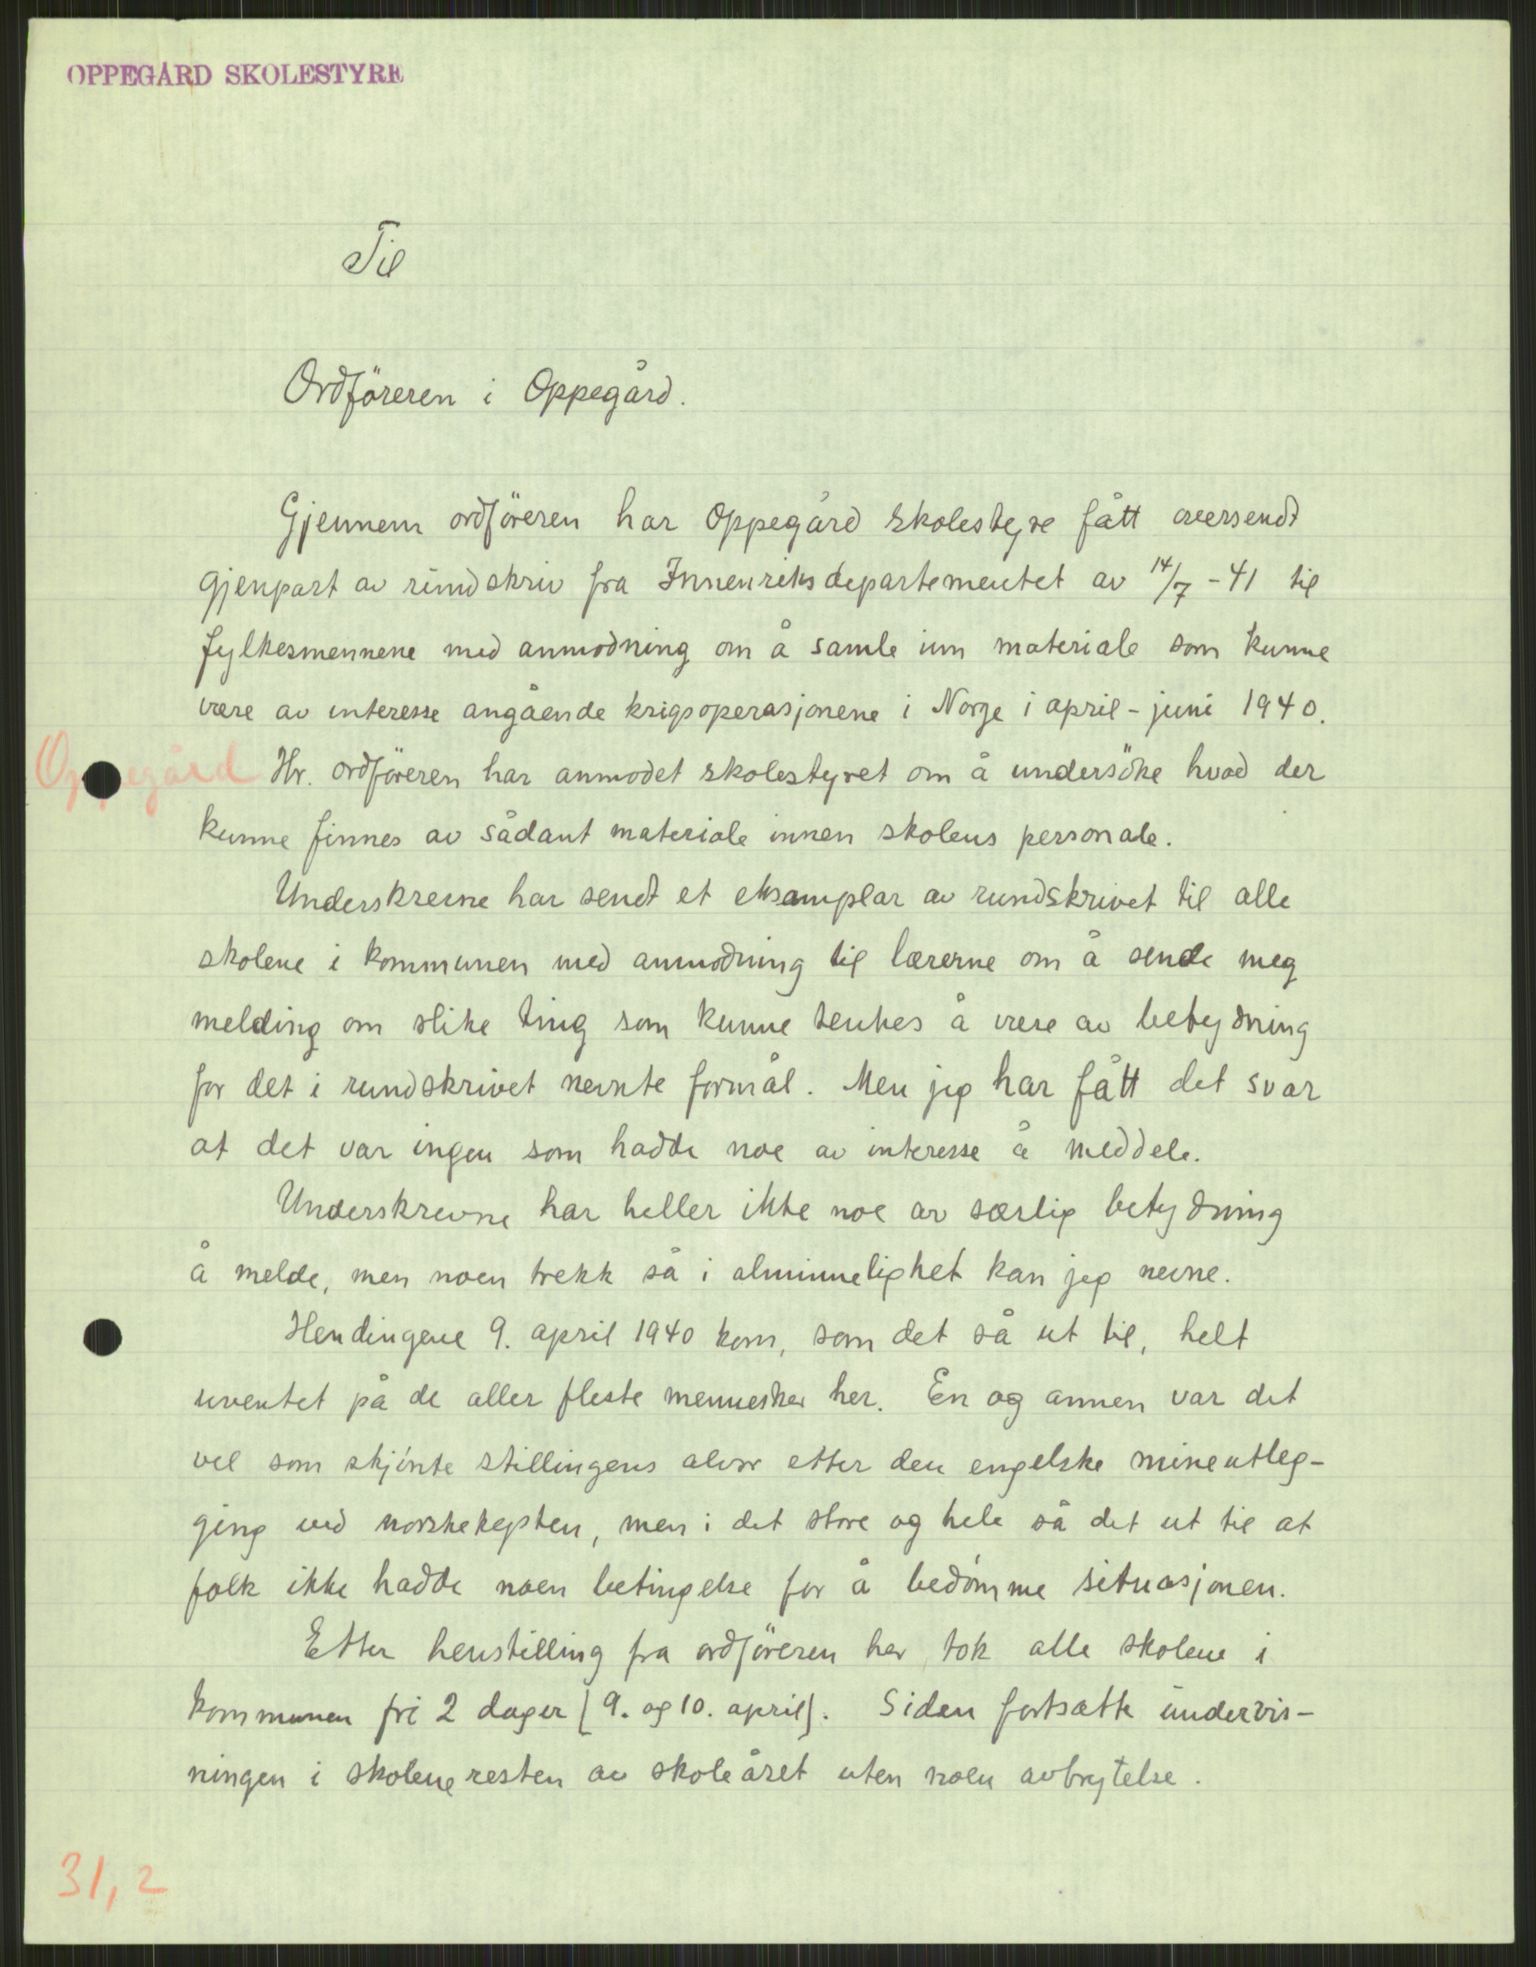 OPPEGÅRD SKOLESTYRE
Til
Ordföreren i Oppegård.
Gjennem ordföreren har Oppegård skolestyre fått oversendt
gjenpart av rundskriv fra Innenriksdepartementet av 14/7 - 41 til
fylkesmennene med anmodning om å samle inn materiale som kunne
være av interesse angående krigsoperasjonene i Norge i april - juni 1940.
Oppegård
Hr. ordföreren har anmodet skolestyret om å undersöke hvad der
kunne finnes av sådant materiale innen skolens personale.
Underskrevne har sendt et eksamplar av rundskrivet til alle
skolene i kommunen med anmodning til lærerne om å sende meg
melding om slike ting som kunne tenkes å være av betydning
for det i rundskrivet nevnte formål. Men jeg har fått det svar
at det var ingen som hadde noe av interesse å meddele.
Underskrevne har heller ikke noe av særlig betydning
å melde, men noen trekk så i alminnelighet kan jeg nevne.
Hendingene 9. april 1940 kom, som det så ut til, helt
uventet på de aller fleste mennesker her. En og annen var det
vel som skjönte stillingens alvor etter den engelske mineutleg-
ging ved norskekysten, men i det store og hele så det ut til at
folk ikke hadde noen betingelse for å bedömme situasjonen.
Etter henstilling fra ordföreren her, tok alle skolene i
kommunen fri 2 dager [9. og 10. april]. Siden fortsatte undervis-
ningen i skolene resten av skoleåret uten noen avbrytelse.
31, 2